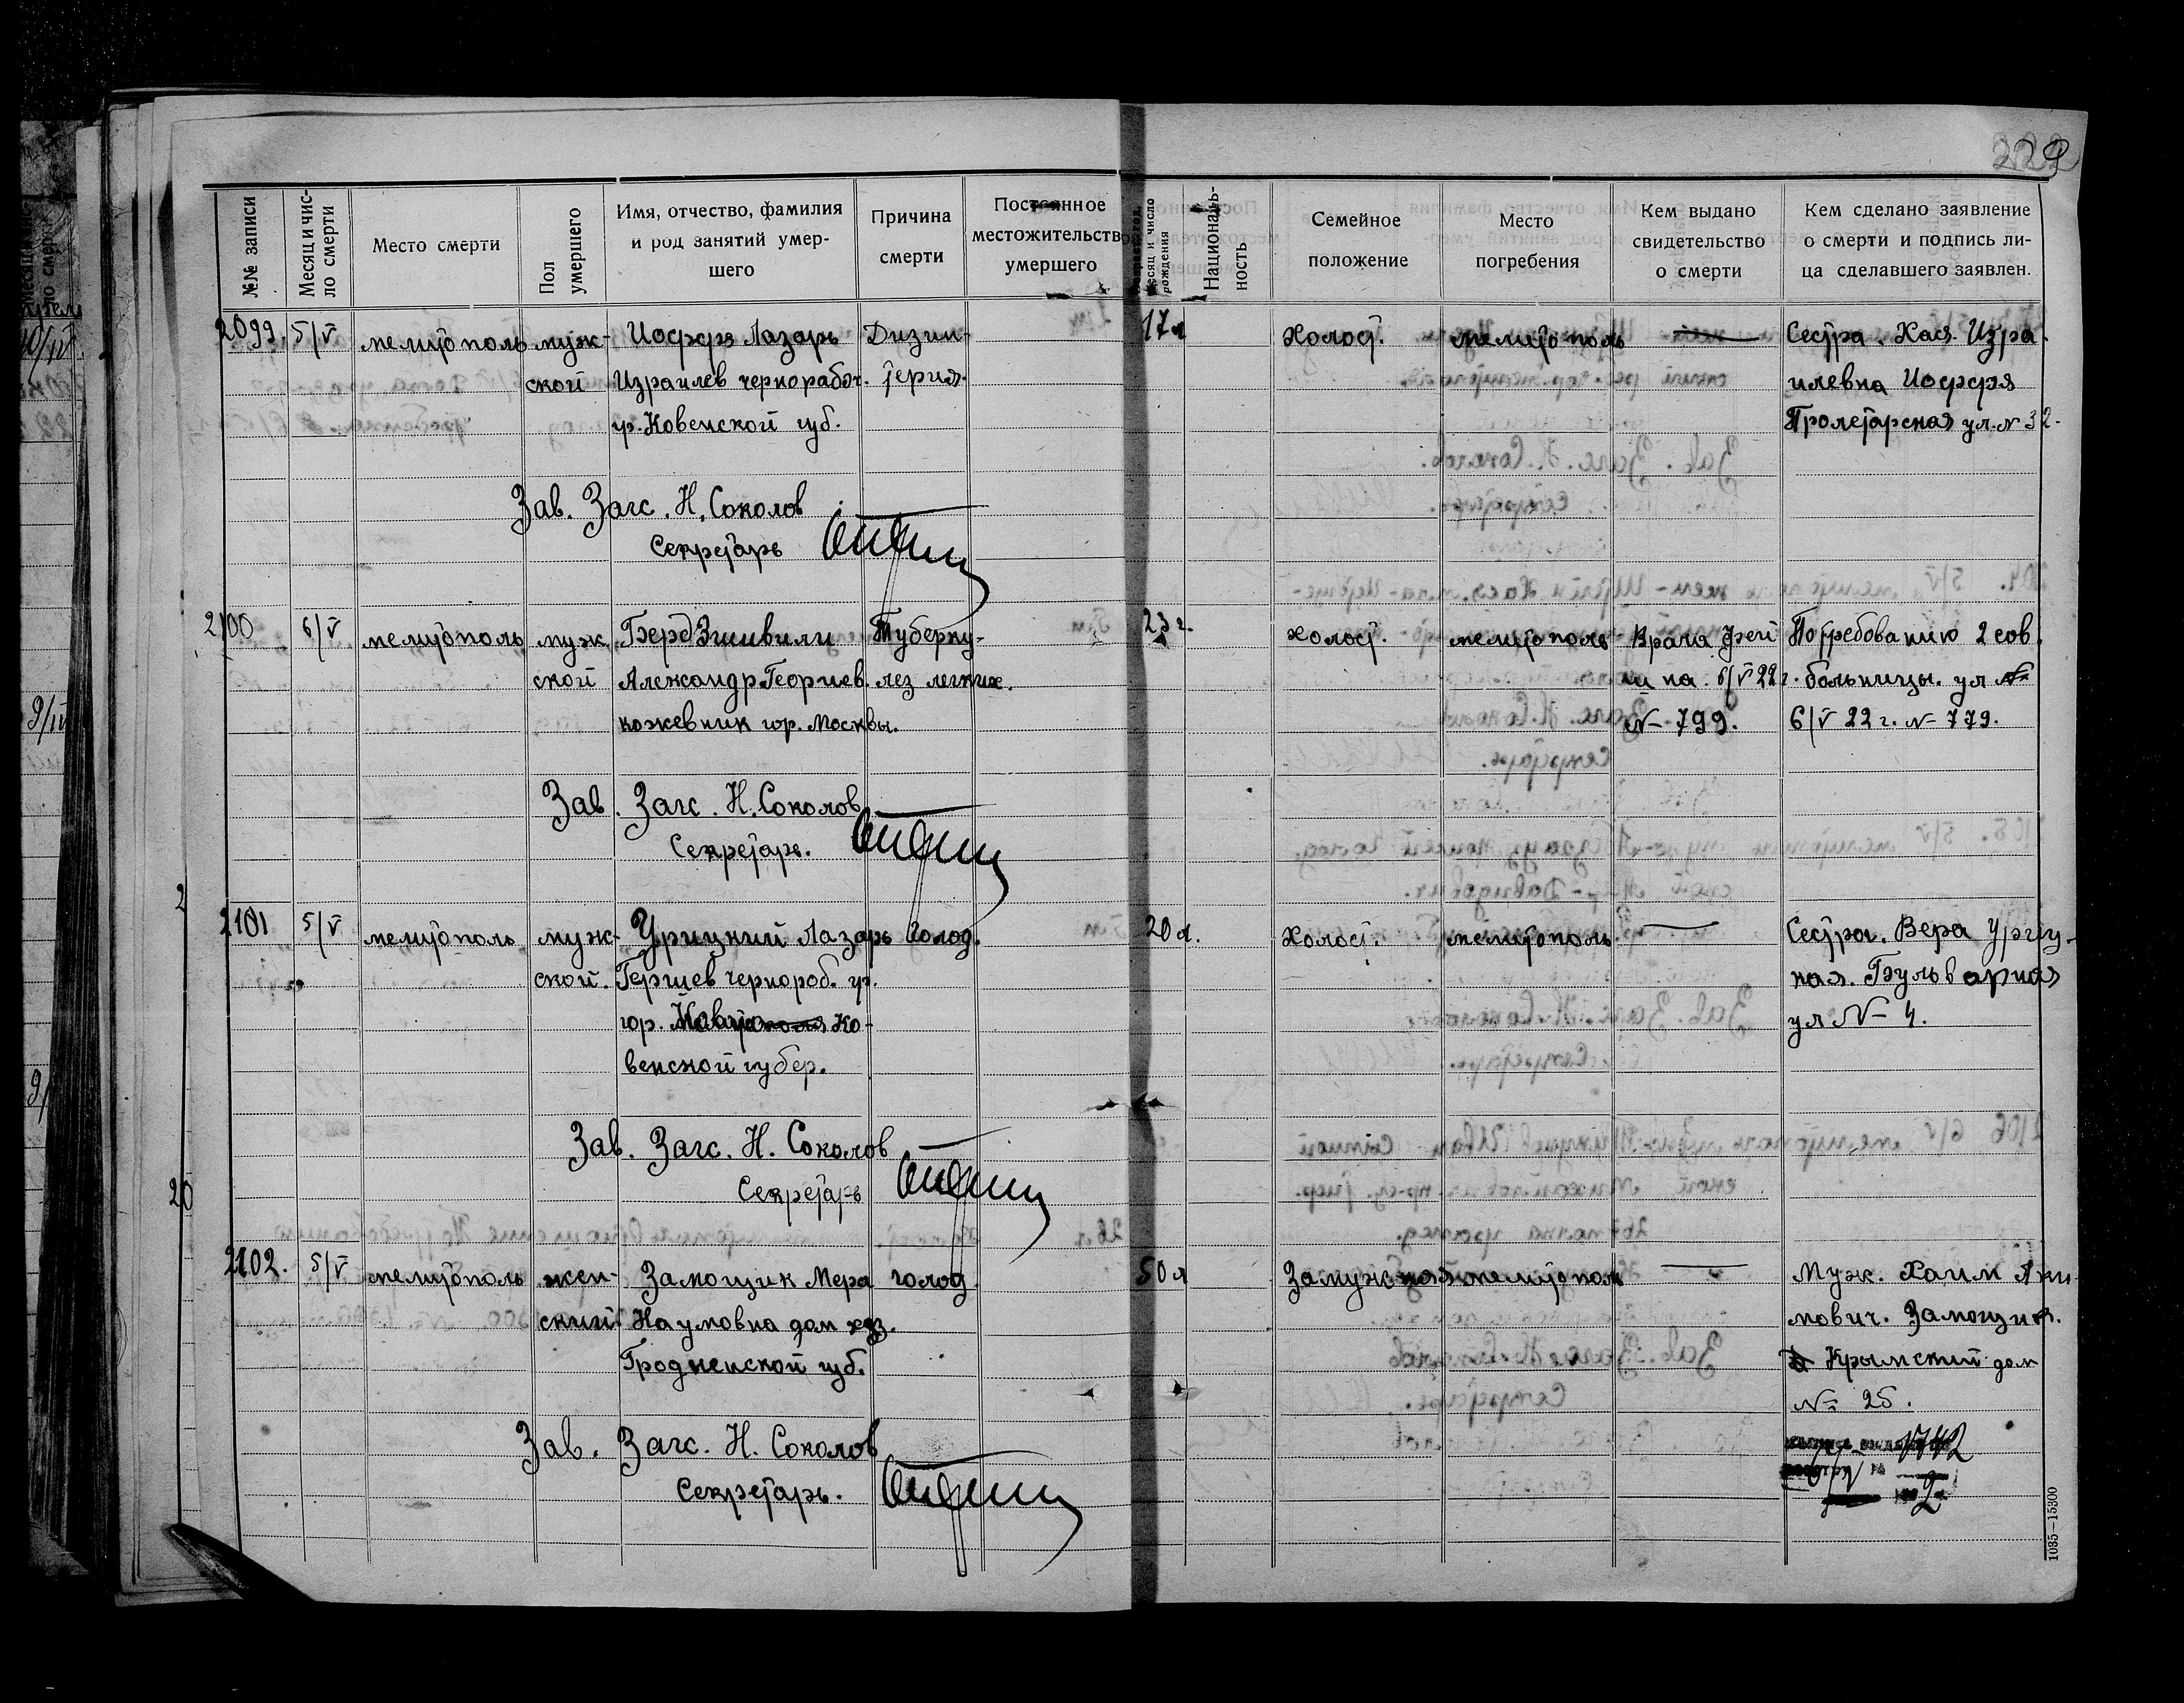 229
№№ записи
Месяц и чис-
ло смерти
Место смерти
Пол
умершего
Имя, отчество, фамилия
и род занятий умер-
шего
Причина
смерти
Постоянное
местожительство
умершего
месяц и число
рождения
Националь-
ность
Семейное
положение
Место
погребения
Кем выдано
свидетельство
о смерти
Кем сделано заявление
о смерти и подпись ли-
ца сделавшего заявлен.
2099. 5/V мелитополь муж- Иоффе Лазарь Дизин- 17 л холост. мелитополь — Сестра. Хая. Изра-
ской Израилев чернорабоч. терия. илевна Иоффя
гр. Ковенской губ. Пролетарская ул. № 32.
Зав. Загс. Н. Соколов
Секретарь
2100 6/V мелитополь муж БердЗишвили Туберку- 23 г. холост. мелитополь Врача
ской Александр Георгиев. лез легких. на 6/V 22 г. больницы. ул №
кожевник гор. Москвы. № 799. 6/V 22 г. № 779.
По требованию 2 сов.
Зав. Загс. Н. Соколов
Секретарь.
2101 5/V мелитополь муж- Урицкий Лазарь голод. 20 л. Холост. мелитополь. — Сестра. Вера Уриц-
ской. Гершев чернороб. гр. кая. Бульварная
гор. Ко- ул № 4.
венской губер.
Зав. Загс. Н. Соколов
Секретарь
2102. 5/V мелитополь жен- Замощик Мера голод 50 л Замужняя мелитополь — Муж. Хаим
ский Наумовна дом хоз. мович. Замощик.
Гродненской губ. Крымский дом
№ 25.
Зав. Загс. Н. Соколов
Секретарь.
1742
2
1035—15300